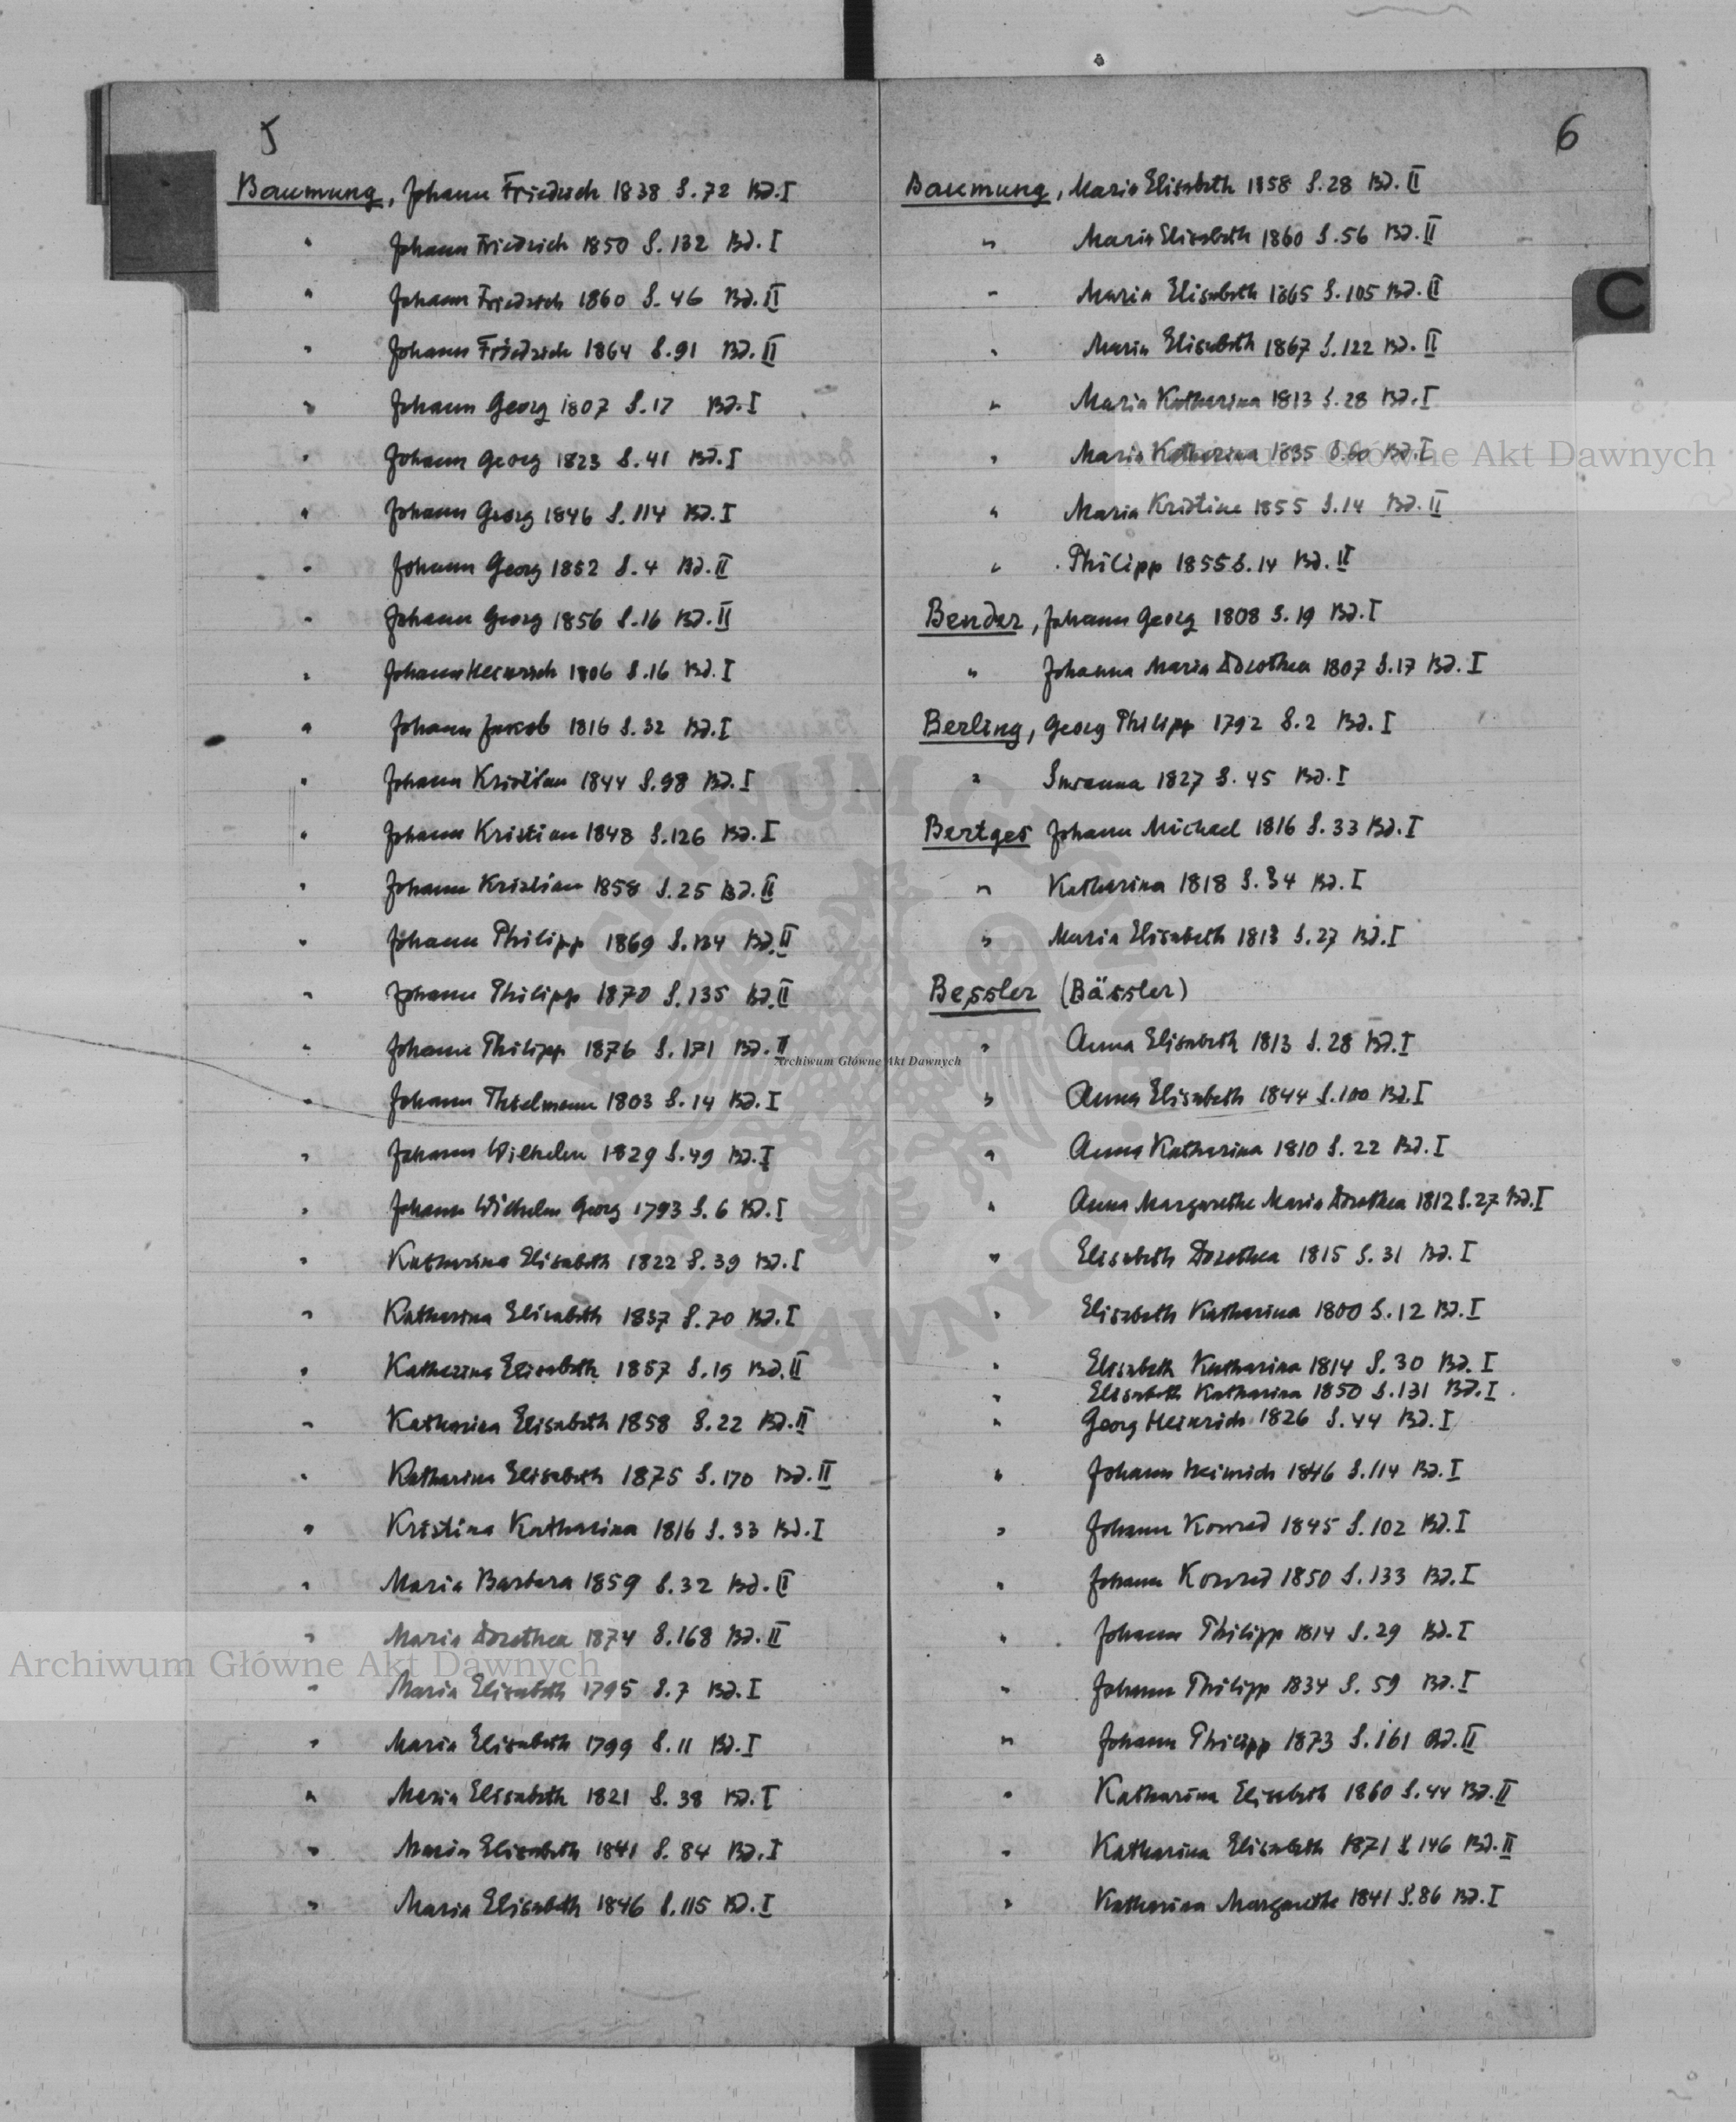 5
Baumung, Johann Friedrich 1838 S. 72 Bd. I
" Johann Friedrich 1850 S. 132 Bd. I
" Johann Friedrich 1860 S. 46 Bd. II
" Johann Friedrich 1864 S. 91 Bd. II
" Johann Georg 1807 S. 17 Bd. I
" Johann Georg 1823 S. 41 Bd. I
" Johann Georg 1846 S. 114 Bd. I
" Johann Georg 1852 S. 4 Bd. II
" Johann Georg 1856 S. 16 Bd. II
" Johann Heinrich 1806 S. 16 Bd. I
" Johann Jakob 1816 S. 32 Bd. I
" Johann Kristian 1844 S. 98 Bd. I
" Johann Kristian 1848 S. 126 Bd. I
" Johann Kristian 1858 S. 25 Bd. II
" Johann Philipp 1869 Bd. II
" Johann Philipp 1870 S. 135 Bd. II
" Johann Philipp 1876 S. 171 Bd. II
" Johann Thielmann 1803 S. 14 Bd. I
" Johann Wilhelm 1829 S. 49 Bd. I
" Johann Wilhelm Georg 1793 S. 6 Bd. I
" Katharina Elisabeth 1822 S. 39 Bd. I
" Katharina Elisabeth 1837 S. 70 Bd. I
" Katharina Elisabeth 1857 S. 19 Bd. II
" Katharina Elisabeth 1858 S. 22 Bd. II
" Katharina Elisabeth 1875 S. 170 Bd. II
" Kristina Katharina 1816 S. 33 Bd. I
" Maria Barbara 1859 S. 32 Bd. II
" Maria Dorothea 1874 S. 168 Bd. II
" Maria Elisabeth 1795 S. 7 Bd. I
" Maria Elisabeth 1799 S. 11 Bd. I
" Maria Elisabeth 1821 S. 38 Bd. I
" Maria Elisabeth 1841 S. 84 Bd. I
" Maria Elisabeth 1846 S. 115 Bd. I
6
Baumung, Maria Elisabeth 1858 S. 28 Bd. II
" Maria Elisabeth 1860 S. 56 Bd. II
" Maria Elisabeth 1865 S. 105 Bd. II
" Maria Elisabeth 1867 S. 122 Bd. II
" Maria Katharina 1813 S. 28 Bd. I
" Maria Katharina 1835 S. 60 Bd. I
" Maria Kristine 1855 S. 14 Bd. II
" Philipp 1855 S. 14 Bd. II
Bender, Johann Georg 1808 S. 19 Bd. I
" Johanna Maria Dorothea 1807 S. 17 Bd. I
Berling, Georg Philipp 1792 S. 2 Bd. I
" Susanna 1827 S. 45 Bd. I
Bertges Johann Michael 1816 S. 33 Bd. I
" Katharina 1818 S. 34 Bd. I
" Maria Elisabeth 1813 S. 27 Bd. I
Bessler (Bässler)
" Anna Elisabeth 1813 S. 28 Bd. I
" Anna Elisabeth 1844 S. 100 Bd. I
" Anna Katharina 1810 S. 22 Bd. I
" Anna Margarethe Maria Dorothea 1812 S. 27 Bd. I
" Elisabeth Dorothea 1815 S. 31 Bd. I
" Elisabeth Katharina 1800 S. 12 Bd. I
" Elisabeth Katharina 1814 S. 30 Bd. I
" Elisabeth Katharina 1850 S. 131 Bd. I
" Georg Heinrich 1826 S. 44 Bd. I
" Johann Heinrich 1846 S. 114 Bd. I
" Johann Konrad 1845 S. 102 Bd. I
" Johann Konrad 1850 S. 133 Bd. I
" Johann Philipp 1814 S. 29 Bd. I
" Johann Philipp 1834 S. 59 Bd. I
" Johann Philipp 1873 S. 161 Bd. II
" Katharina Elisabeth 1860 S. 44 Bd. II
" Katharina Elisabeth 1871 S. 146 Bd. II
" Katharina Margarethe 1841 S. 86 Bd. I
C
Archiwum Główne Akt Dawnych
Archiwum Główne Akt Dawnych
Archiwum Główne Akt Dawnych